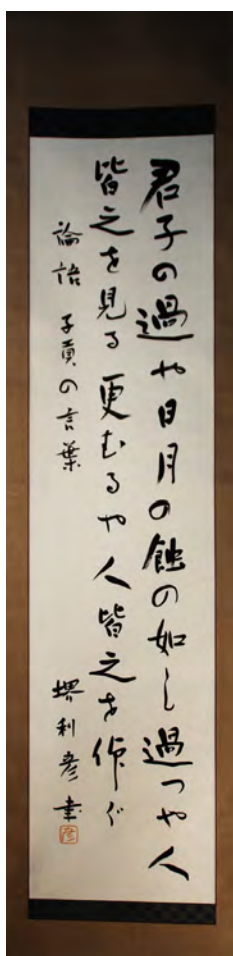 君子の過や日月の蝕の如し過つや人
皆之を見る更むるや人皆之を仰ぐ
論語 子貢の言葉
堺利彦書
彦